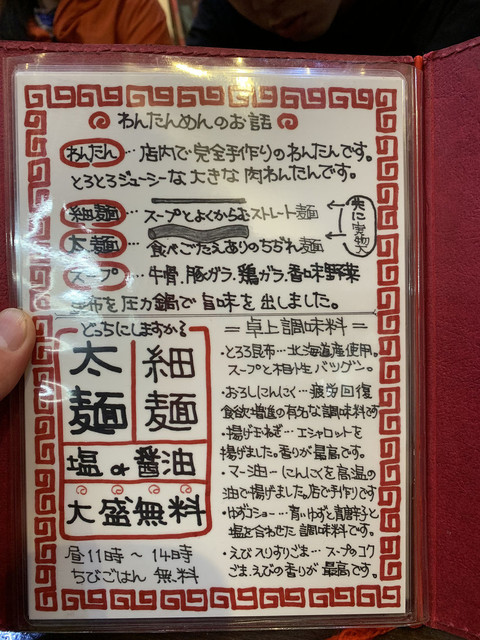 わんたんめんのお話
わんたん … 店内で完全手作りのわんたんです。
とろとろジューシーな大きな肉わんたんです。
細麺 … スープとよくからむストレート麺
太麺 … 食べごたえありのちぢれ麺
共に実物大
スープ … 牛骨、豚ガラ、鶏ガラ、香味野菜
昆布を圧力鍋で旨味を出しました。
どっちにしますかる
太麺 細麺
塩 or 醤油
大盛無料
昼11時～14時
ちびごはん 無料
＝卓上調味料＝
・とろろ昆布…北海道産使用。
スープと相性バツグン。
・おろしにんにく…疲労回復
食欲増進の有名な調味料です
・揚げ玉ねぎ…エシャロットを
揚げました。香りが最高です。
・マー油ーにんにくを高温の
油で揚げました。店で手作りです
・ゆずコショー…青いゆずと青唐辛子と
塩を合わせた調味料です。
・えび入りすりごま…スープのコク
ごま、えびの香りが最高です。